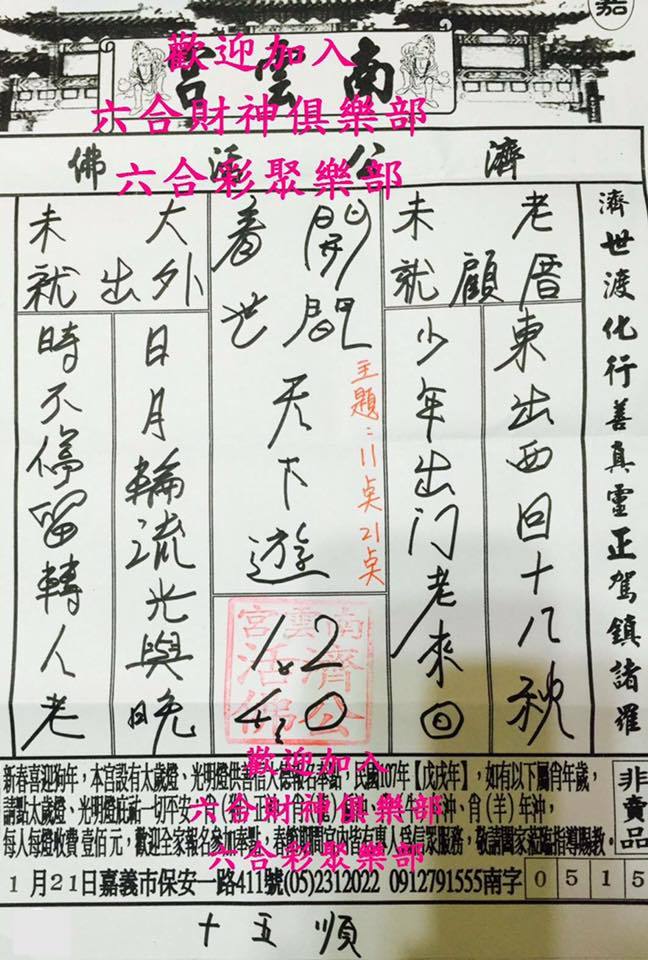 歡迎加入
南雲宮
六合財神俱樂部
濟公活佛
六合彩聚樂部
濟世渡化行善真靈正駕鎮諸羅
老厝
顧
未就
東出西回十八秋
少年出门老來回
開
看世
天下遊
主題：11点21点
1.2
4.0
南雲宮
濟公
活佛
大外
出
未就
日月輪流光與晚
時不停留轉人老
歡迎加入
六合財神俱樂部
六合彩聚樂部
新春喜迎狗年，本宮設有太歲燈、光明燈供善信大德報名奉點，民國107年【戊戌年】，如有以下屬肖年歲，
請點太歲燈、光明燈庇祐一切平安 肖(羊)年沖，
每人每燈收費壹佰元，歡迎全家報名參加奉點，春節期間宮內皆有專人為信眾服務，敬請闔家蒞臨指導賜教。
非賣品
1月21日嘉義市保安一路411號(05)2312022 0912791555南字0515
十五順